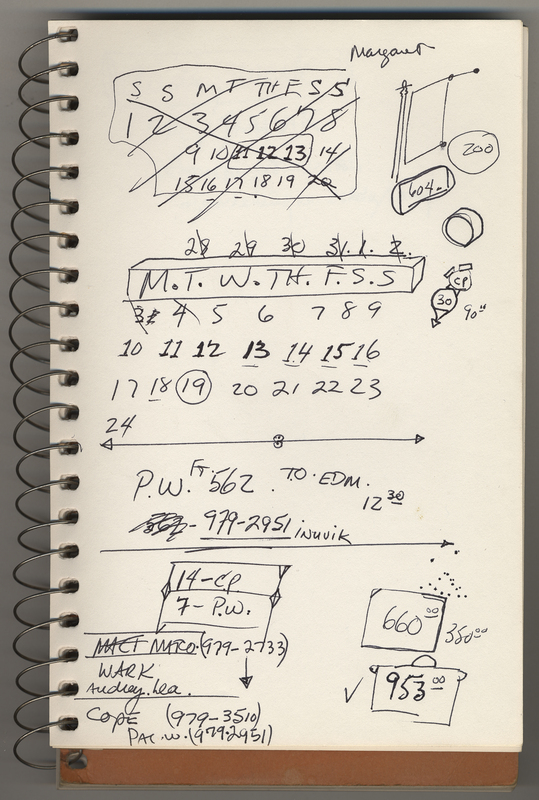 Margaret
S S M T TH F S S
1 2 3 4 5 6 7 8
9 10 11 12 13 14
15 16 17 18 19 20
200
604.
28 29 30 31. 1. 2.
M.T. W. TH. F. S. S
CP
30
90.00
3 4 5 6 7 8 9
10 11 12 13 14 15 16
17 18 19 20 21 22 23
24
P.W. FT. 562 . TO . EDM.
12 30
- 979-2951 INUVIK
14 - CP
7 - P.W.
660 00
350 00
(979-2733)
WARK
Audrey. Lea.
953 00
COPE (979-3510)
PAC. W. (979-2951)